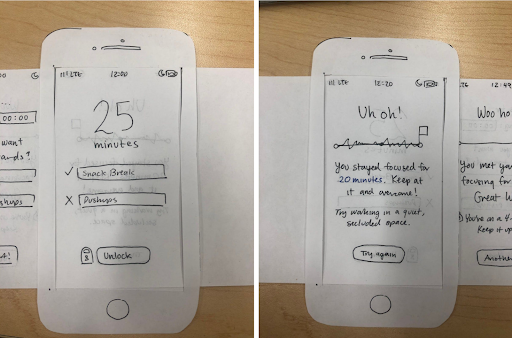 00:00
want
ands?
shups
!
LTE 12:00
25
minutes
✓ Snack Break
X Pushups
8 Unlock
LTE 12:20
Uh oh!
You stayed focused for
20 minutes. Keep at
it and overcome!
Try working in a quiet,
secluded space.
Try again
LTE 12:4
Woo ho
You met yo
focusing for
Great W
You're on a 4-
Keep it up
Anothe